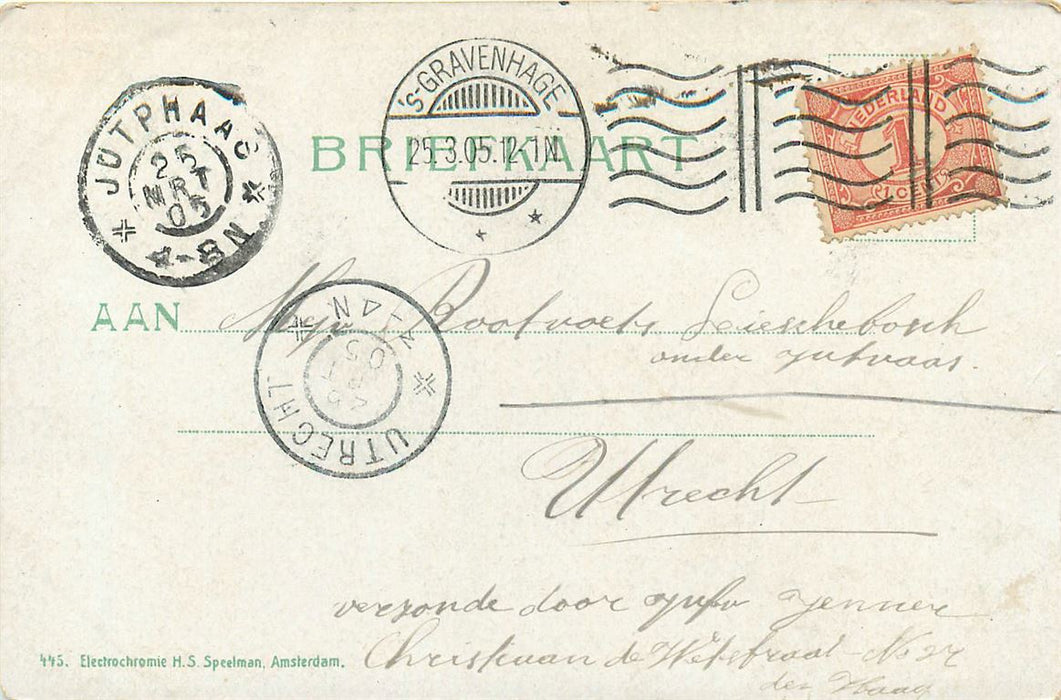 JUTPHAAS
25
MRT
05
4-8N
's-GRAVENHAGE
25.3.05.12-1N.
NEDERLAND
1
1 CENT
BRIEFKAART
AAN Rootvoets Liesschebosch
onder Jutvaas.
UTRECHT
05
Utrecht
verzonde door Jufv Jenner
Christiaan de Wetstraat No 27
den Haag
445. Electrochromie H.S. Speelman, Amsterdam.